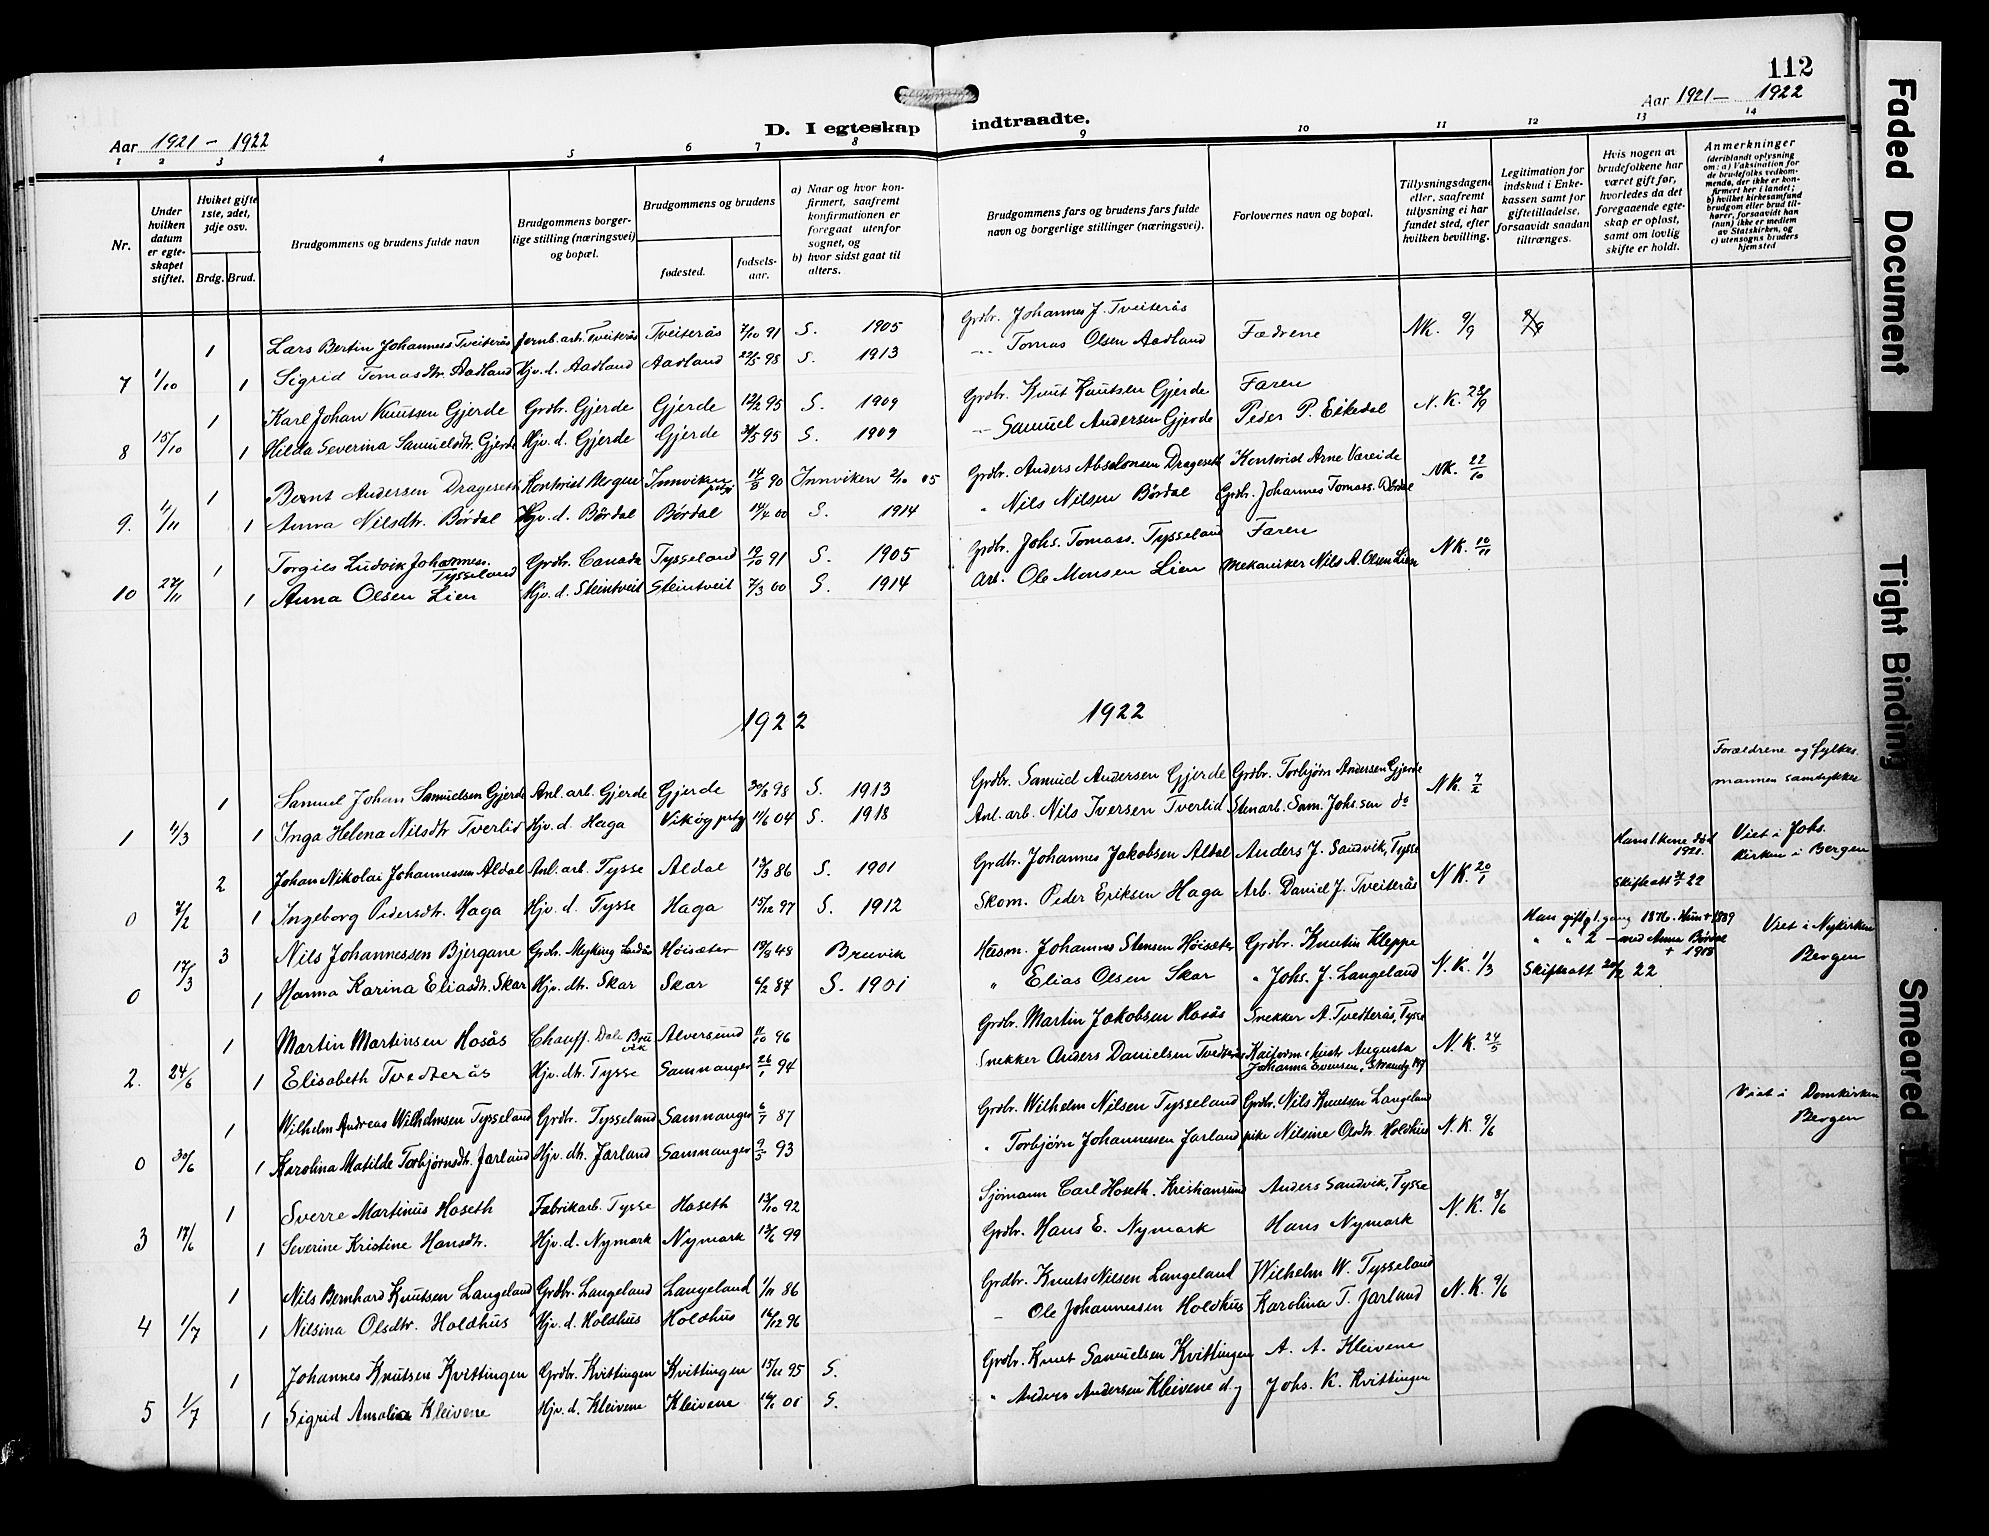 112
Aar 1921 - 1922
D. I egteskap indtraadte.
Aar 1921 - 1922
1 2 3 4 5 6 7 8 9 10 11 12 13 14
Nr.
Under hvilken datum er egteskapet stiftet.
Hviket gifte 1ste, 2det, 3dje osv.
Brdg. Brud.
Brudgommens og brudens fulde navn
Brudgommens borgerlige stilling (næringsvei) og bopæl.
Brudgommens og brudens
fødested.
fødselsaar.
a) Naar og hvor konfirmert, saafremt konfirmationen er foregaat utenfor sognet, og
b) hvor sidst gaat til alters.
Brudgommens fars og brudens fars fulde navn og borgerlige stillinger (næringsvei).
Forlovernes navn og bopæl.
Tillysningsdagene eller, saafremt tillysning ei har fundet sted, efter hvilken bevilling.
Legitimation for indskud i Enkekassen samt for giftetilladelse, forsaavidt saadan tiltrænges.
Hvis nogen av brudefolkene har været gift før, hvorledes da det foregaaende egteskap er opløst, samt om lovlig skifte er holdt.
Anmerkninger
(deriblandt oplysning om: a) Vaksination for de brudefolks vedkommende, der ikke er konfirmert her i landet; b) hvilket kirkesamfund brudgom eller brud tilhører, forsaavidt han (hun) ikke er medlem av Statskirken, og c) utensogns bruders hjemsted
1 Lars Bertin Johanness Tveiterås Jernb. arb. Tveiterås Tveiterås 7/10 91 S. 1905 Grdbr. Johannes J. Tveiterås Fædrene NK. 9/9
7 1/10 1 Sigrid Tomasdtr. Aadland Hjv. d. Aadland Aadland 22/5 98 S. 1913 -- Tomas Olsen Aadland
1 Karl Johan Knutsen Gjerde Grdbr. Gjerde Gjerde 12/2 95 S. 1909 Grdbr. Knut Knutsen Gjerde Faren N.K. 23/9
8 15/10 1 Hilda Severina Samuelsdtr. Gjerde Hjv. d. Gjerde Gjerde 31/5 95 S. 1909 -- Samuel Andersen Gjerde Peder P. Eikedal
1 Bernt Andersen Drageseth Kontorist Bergen Innviken prstgj 14/8 90 Innviken 2/10 05 Grdbr. Anders Absalonsen Drageseth Kontorist Arne Væreide NK. 22/10
9. 11/11 1 Anna Nilsdtr. Børdal Hjv. d. Børdal Børdal 14/4 00 S. 1914 " Nils Nilsen Børdal Grdbr. Johannes Tomass. Børdal
1 Torgils Ludvik Johannesn. Tysseland Grdbr. Canada Tysseland 19/10 91 S. 1905 Grdbr. Johs. Tomass. Tysseland Faren NK. 10/11
10 27/11 1 Anna Olsen Lien Hjv. d. Steintveit Steintveit 7/3 00 S. 1914 Arb. Ole Monsen Lien Mekaniker Nils A. Olsen Lien
1922 1922
1 Samuel Johan Samuelsen Gjerde Anl. arb. Gjerde Gjerde 30/8 98 S. 1913 Grdbr. Samuel Andersen Gjerde Grdbr. Torbjørn Andersen Gjerde NK. 7/2 Forældrene og fylkesmannen samtykker
1 11/3 1 Inga Helena Nilsdtr Tverlid Hjv. d. Haga Vikøy prstgj 11/6 04 S. 1918 Anl. arb. Nils Iversen Tverlid Stenarb. Sam. Johs.sen do
2 Johan Nikolai Johannessen Aldal Anl. arb. Tysse Aldal 13/3 86 S. 1901 Grdbr. Johannes Jakobsen Aldal Anders J. Sandvik, Tysse NK. 20/1 Hans 1. kone død 1921. Viet i Johs. kirken i Bergen
0 7/2 1 Ingeborg Pedersdtr. Haga Hjv. d. Tysse Haga 15/12 97 S. 1912 Skom. Peder Eriksen Haga Arb. Daniel J. Tveiterås Skifteatt 22
3 Nils Johannessen Bjergane Grdbr. Myking Høisæter 18/8 48 Bruvik Husm. Johannes Stensen Høisæter Grdbr. Knutin Kleppe N.K. 1/3 Han gift gang 1876. Hun + 1889 Viet i Nykirken Bergen
" " 2 - med Anna Børdal + 1908
0 17/3 1 Hanna Karina Eliasdtr. Skar Hjv. dtr. Skar Skar 6/2 87 S. 1901 " Elias Olsen Skar " Johs. J. Langeland Skifteatt 20/2 22
1 Martin Martinsen Hosås Chauff. Dale Bruvik Alversund 11/10 96 Grdbr. Martin Jakobsen Hosås Snekker A. Tvedterås, Tysse N.K. 24/5
2. 24/6 1 Elisabeth Tvedterås Hjv. dtr. Tysse Samnanger 26/1 94 Snekker Anders Danielsen Tvedterås Augusta Johanna Evensen, Strandg 197
1 Wilhelm Andreas Wilhelmsen Tysseland Grdbr. Tysseland Samnanger 6/7 87 Grdbr. Wilhelm Nilsen Tysseland Grdbr. Nils Knutsen Langeland N.K. 9/6 Viet i Domkirken Bergen
0 30/6 1 Karolina Matilde Torbjørnsdtr. Jarland Hjv. dtr. Jarland Samnanger 9/5 93 " Torbjørn Johannessen Jarland pike Nilsine Olsdtr. Holdhus
1 Sverre Martinus Hoseth Fabrikarb. Tysse Hoseth 13/10 92 Sjømann Carl Hoseth, Kristiansund Anders Sandvik, Tysse N.K. 8/6
3 17/6 1 Severine Kristine Hansdtr. Hjv. d. Nymark Nymark 13/6 99 Grdbr. Hans E. Nymark Hans Nymark
1 Nils Bernhard Knutsen Langeland Grdbr. Langeland Langeland 1/11 86 Grdbr. Knut Nilsen Langeland Wilhelm W. Tysseland N.K. 9/6
4 1/7 1 Nilsina Olsdtr. Holdhus Hjv. d. Holdhus Holdhus 16/12 96 - Ole Johannessen Holdhus Karolina T. Jarland
1 Johannes Knutsen Kvittingen Grdbr. Kvittingen Kvittingen 15/11 95 S. Grdbr. Knut Samuelsen Kvittingen A. A. Kleivene
5 1/7 1 Sigrid Amalia Kleivene Hjv. d. Kleivene Kleivene 01 S. " Anders Andersen Kleivene d.y Johs. K. Kvittingen
Faded Document
Tight Binding
Smeared